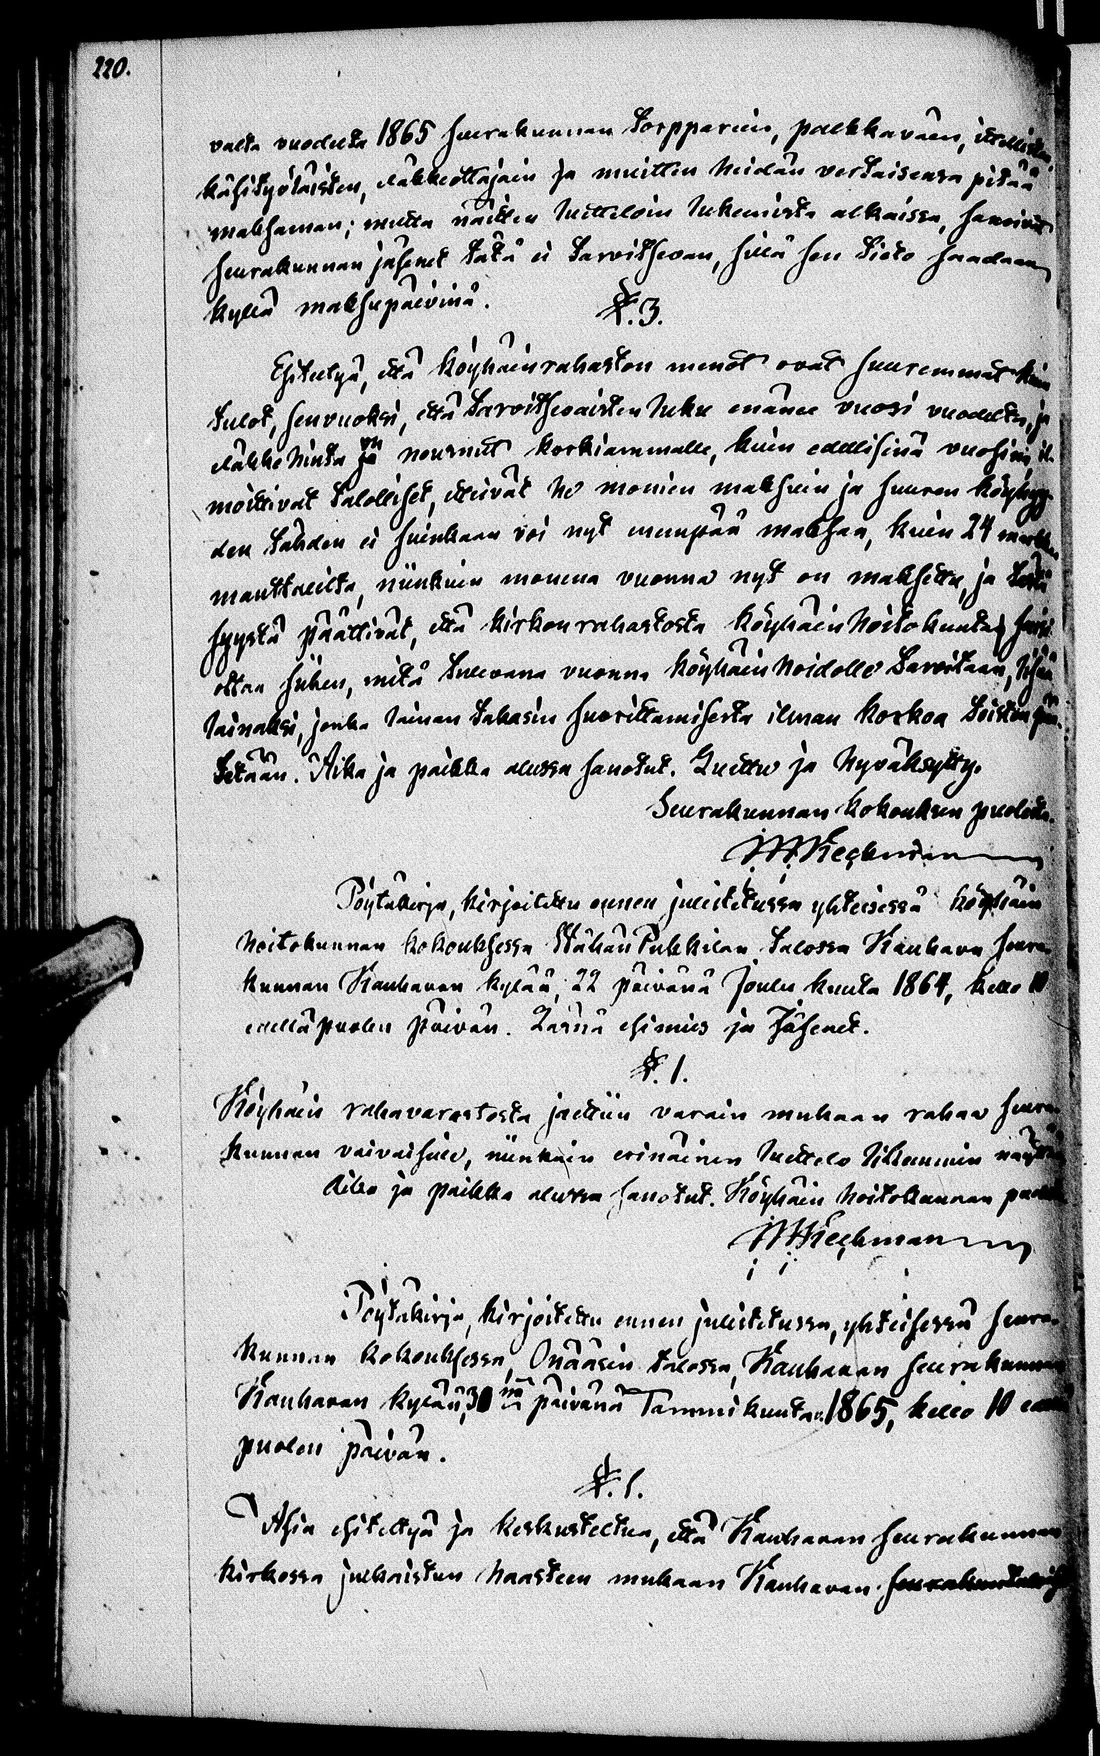 220.
valta vuodelta 1865 seurakunnan torpparien, palkkaväen, itellisten,
käsityöläisten, eläkkeottajain ja muitten heidän vertaisensa pitää
maksaman; mutta näitten luetteloin lukemista alkaissa, sanoivat
seurakunnan jäsenet tätä ei tarvitsevan, sillä sen tieto saadaan
kyllä maksupäivinä.
§. 3.
Esiteltyä, että köyhäinrahaston menot ovat suuremmat kuin
tulot, senvuoksi, että tarvitsevaisten luku enänee vuosi vuodelta, ja
eläkke hinta on noussut korkiammalle, kuin edellisinä vuosina, il-
moittivat talolliset, etteivät he monien maksuin ja suuren köyhyy-
den tähden ei suinkaan voi nyt enempää maksaa, kuin 24 markkaa
manttaalilta, niinkuin monena vuonna nyt on maksettu, ja tästä
syystä päättivät, että kirkon rahastosta köyhäin hoitokunta saisi
ottaa siihen, mitä tulevana vuonna köyhäin hoidolle tarvitaan, lisää
lainaksi, jonka lainan takasin suorittamisesta ilman korkoa toiston
tetään. Aika ja paikka alussa sanotut. Luettu ja hyväksytty.
Seurakunnan kokouksen puolesta.
Pöytäkirja, kirjoitettu ennen julistetussa yhteisessä köyhäin
hoitokunnan kokouksessa Vähän Pukkilan talossa Kauhava seura-
kunnan Kauhavan kylää, 22 päivänä Joulu kuuta 1864, kello 10
edellä puolen päivän. Läsnä esimies ja Jäsenet.
§. 1.
Köyhäin rahavarastosta jaettiin varain mukaan rahaa seura-
kunnan vaivaisille, niinkuin erinäinen luettelo likemmin näyttää
Aika ja paikka alussa sanotut. Köyhäin hoitokunnan puolesta
Pöytäkirja, kirjoitettu ennen julistetussa, yhteisessä seura-
kunnan kokouksessa, Onääsin talossa, Kauhavan seurakunnan
Kauhavan kylää, 30 nä päivänä Tammikuuta 1865, kello 10 edellä
puolen päivän.
§. 1.
Asia esiteltyä ja keskusteltua, että Kauhavan seurakunnan
kirkossa julkaistun haasteen mukaan Kauhavan